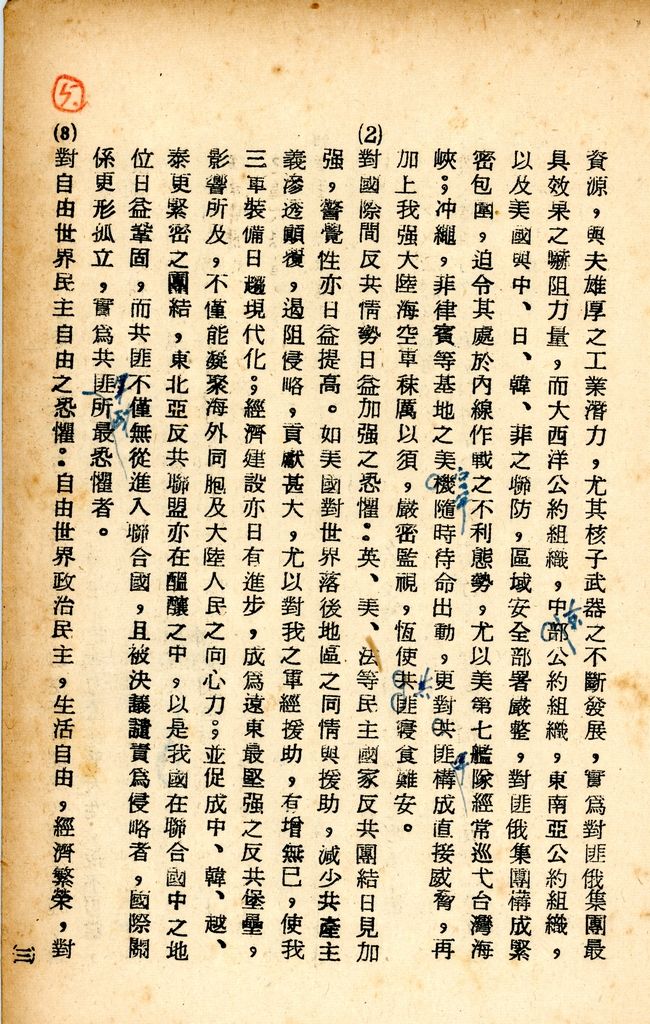 資源，與夫雄厚之工業潛力，尤其核子武器之不斷發展，實爲對匪俄集團最
具效果之嚇阻力量，而大西洋公約組織，中部公約組織，東南亞公約組織，
以及美國與中、日、韓、菲之聯防，區域安全部署嚴整，對匪俄集團構成緊
密包圍，迫令其處於內線作戰之不利態勢，尤以美第七艦隊經常巡弋台灣海
峽；冲繩，菲律賓等基地之美機隨時待命出動，更對共匪構成直接威脅，再
加上我强大陸海空軍秣厲以須，嚴密監視，恆使共匪寢食難安。
(2)對國際間反共情勢日益加强之恐懼：英、美、法等民主國家反共團結日見加
强，警覺性亦日益提高。如美國對世界落後地區之同情與援助，減少共產主
義滲透顚覆，遏阻侵略，貢獻甚大，尤以對我之軍經援助，有增無已，使我
三軍裝備日趨現代化；經濟建設亦日有進步，成爲遠東最堅强之反共堡壘，
影響所及，不僅能凝聚海外同胞及大陸人民之向心力；並促成中、韓、越、
泰更緊密之團結，東北亞反共聯盟亦在醞釀之中，以是我國在聯合國中之地
位日益鞏固，而共匪不僅無從進入聯合國，且被決議譴責爲侵略者，國際關
係更形孤立，實爲共匪所最恐懼者。
(3)對自由世界民主自由之恐懼：自由世界政治民主，生活自由，經濟繁榮，對
5.
三